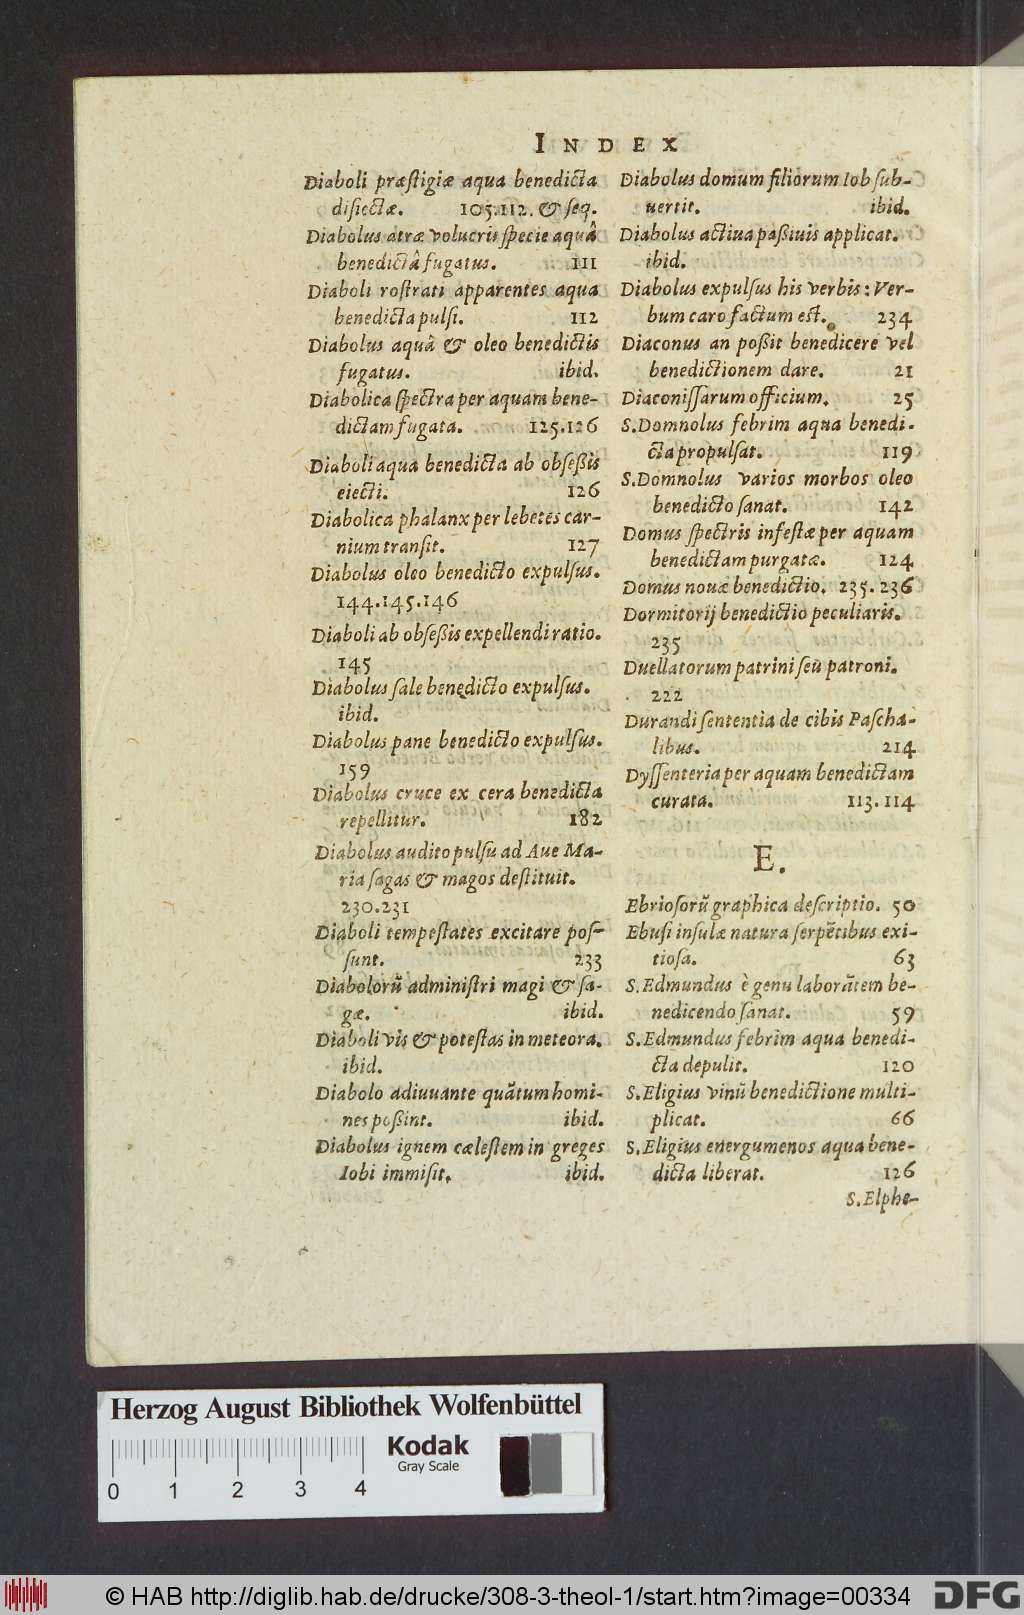 INDEX
Diaboli præstigiæ aqua benedicta
disiectæ. 105.112. & seq.
Diabolus atræ volucris specie aquâ
benedictâ fugatus. 111
Diaboli rostrati apparentes aqua
benedicta pulsi. 112
Diabolus aquâ & oleo benedictis
fugatus. ibid.
Diabolica spectra per aquam bene-
dictam fugata. 125.126
Diaboli aqua benedicta ab obseßis
eiecti. 126
Diabolica phalanx per lebetes car-
nium transit. 127
Diabolus oleo benedicto expulsus.
144.145.146
Diaboli ab obseßis expellendi ratio.
145
Diabolus sale benedicto expulsus.
ibid.
Diabolus pane benedicto expulsus.
159
Diabolus cruce ex cera benedicta
repellitur. 182
Diabolus audito pulsu ad Aue Ma-
ria sagas & magos destituit.
230.231
Diaboli tempestates excitare pos-
sunt. 233
Diabolorũ administri magi & sa-
gæ. ibid.
Diaboli vis & potestas in meteora.
ibid.
Diabolo adiuuante quãtum homi-
nes poßint. ibid.
Diabolus ignem cælestem in greges
Iobi immisit. ibid.
Diabolus domum filiorum Iob sub-
uertit. ibid.
Diabolus actiua paßiuis applicat.
ibid.
Diabolus expulsus his verbis: Ver-
bum caro factum est. 234
Diaconus an poßit benedicere vel
benedictionem dare. 21
Diaconissarum officium. 25
S. Domnolus febrim aqua benedi-
cta propulsat. 119
S. Domnolus varios morbos oleo
benedicto sanat. 142
Domus spectris infestæ per aquam
benedictam purgatæ. 124
Domus nouæ benedictio. 235.236
Dormitorij benedictio peculiaris.
235
Duellatorum patrini seu patroni.
222
Durandi sententia de cibis Pascha-
libus. 214
Dyssenteria per aquam benedictam
curata. 113.114
E.
Ebriosorũ graphica descriptio. 50
Ebusi insulæ natura serpẽtibus exi-
tiosa. 63
S. Edmundus è genu laborãtem be-
nedicendo sanat. 59
S. Edmundus febrim aqua benedi-
cta depulit. 120
S. Eligius vinũ benedictione multi-
plicat. 66
S. Eligius energumenos aqua bene-
dicta liberat. 126
S. Elphe-
Herzog August Bibliothek Wolfenbüttel
Kodak
Gray Scale
0 1 2 3 4
© HAB http://diglib.hab.de/drucke/308-3-theol-1/start.htm?image=00334
DFG